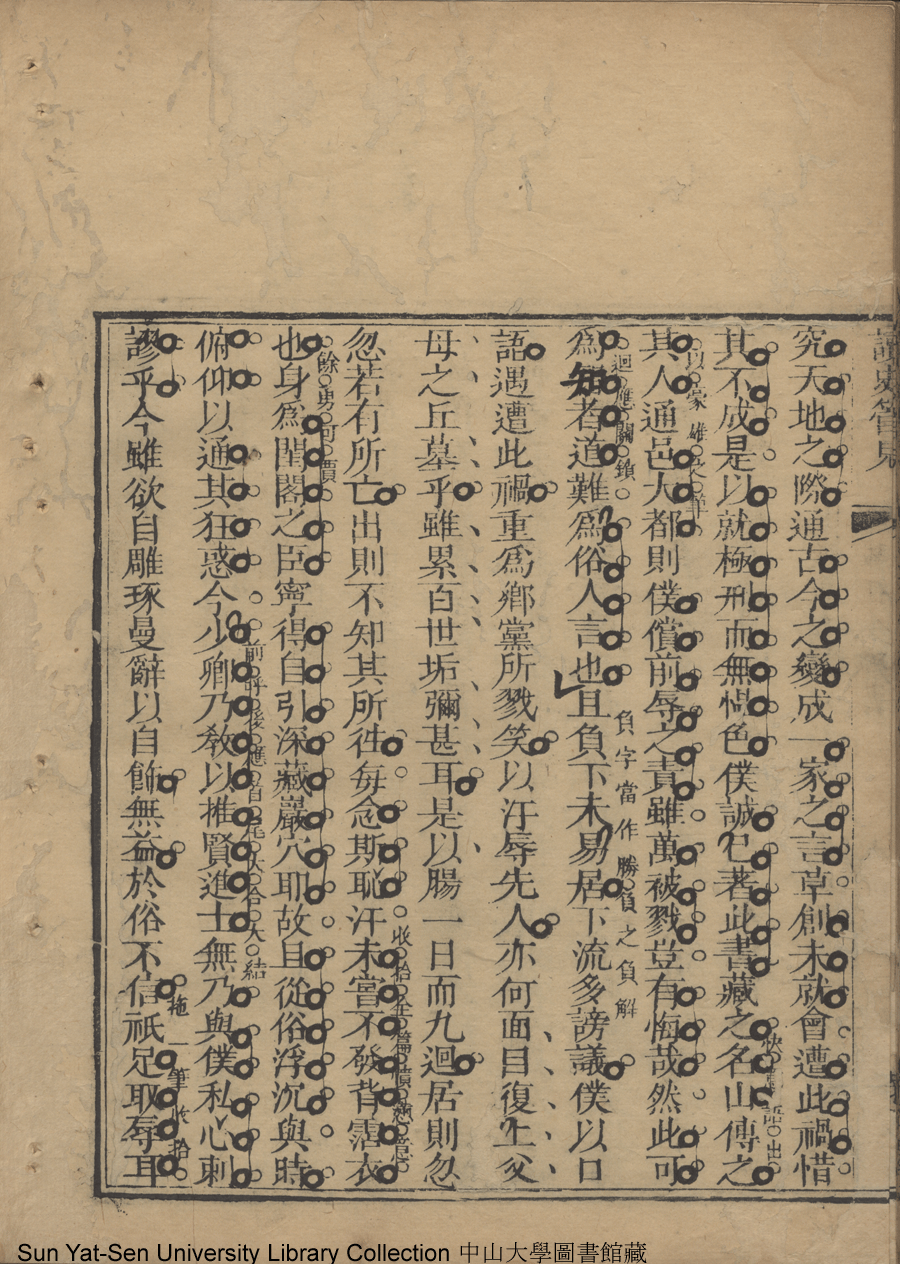 究天地之際通古今之變成一家之言草創未就會遭此禍惜
其不成是以就極刑而無慍色僕誠已著此書藏之名山傳之
其人通邑大都則僕償前辱之責雖萬被戮豈有悔哉然此可
以豪雄
爲知者道難爲俗人言也且負下未易居下流多謗議僕以口
迴應關鎖
負字當作勝負之負解
語遇遭此禍重爲鄉黨所戮笑以汙辱先人亦何面目復上父
母之丘墓乎雖累百世垢彌甚耳是以腸一日而九迴居則忽
忽若有所亡出則不知其所徃每念斯恥汗未嘗不發背霑衣
收拾全篇憤
也身爲閨閣之臣寧得自引深藏巖穴耶故且從俗浮沉與時
餘勇可賈
俯仰以通其狂惑今少卿乃敎以推賢進士無乃與僕私心剌
前呼後應首尾大合大結
謬乎今雖欲自雕琢曼辭以自飾無益於俗不信祇足取辱耳
拖一筆收拾
Sun Yat-Sen University Library Collection 中山大學圖書館藏